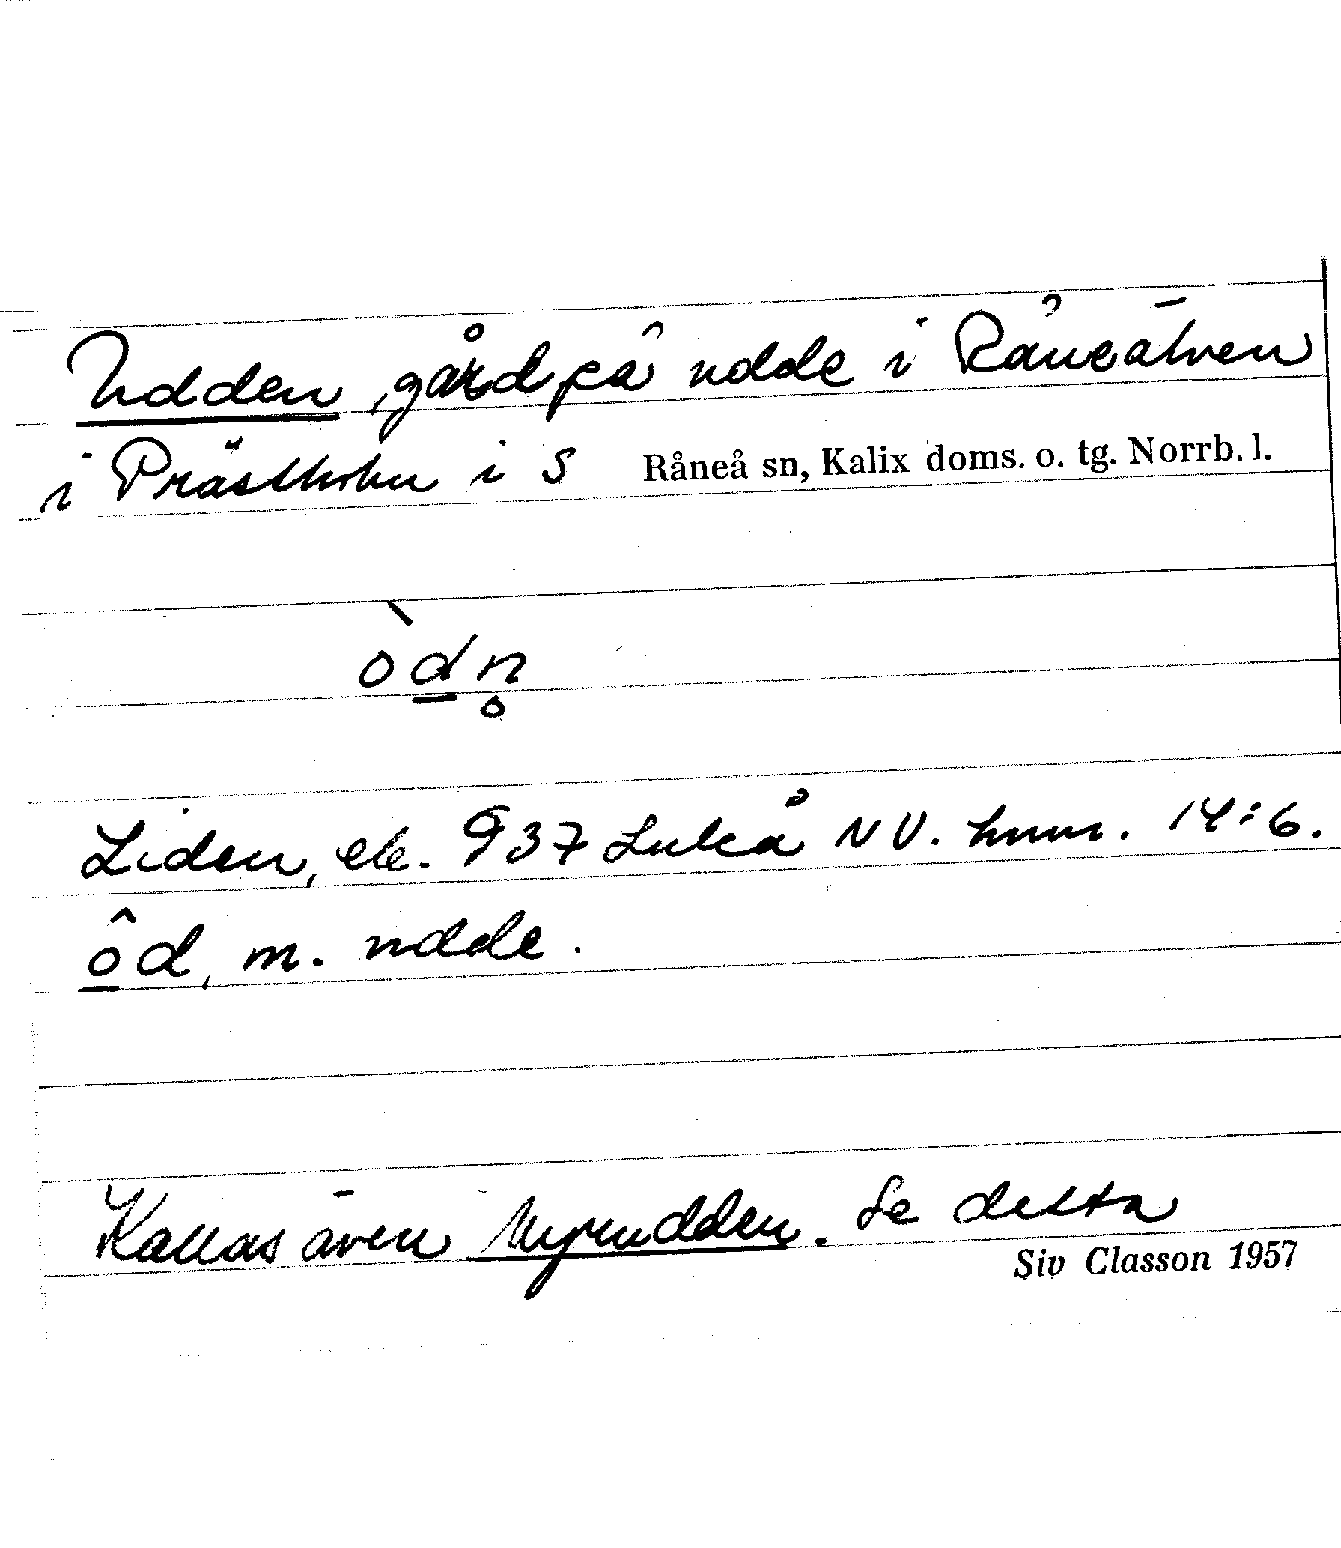 Udden, gård på udde i Råneälven
i Prästholm i S Råneå sn, Kalix doms. o. tg. Norrb. l.
òd̲n̥
Liden, ek. 937 Luleå NV. 14:6.
ô̲d, m. udde.
Kallas även Nyrudden. Se detta
Siv Classon 1957